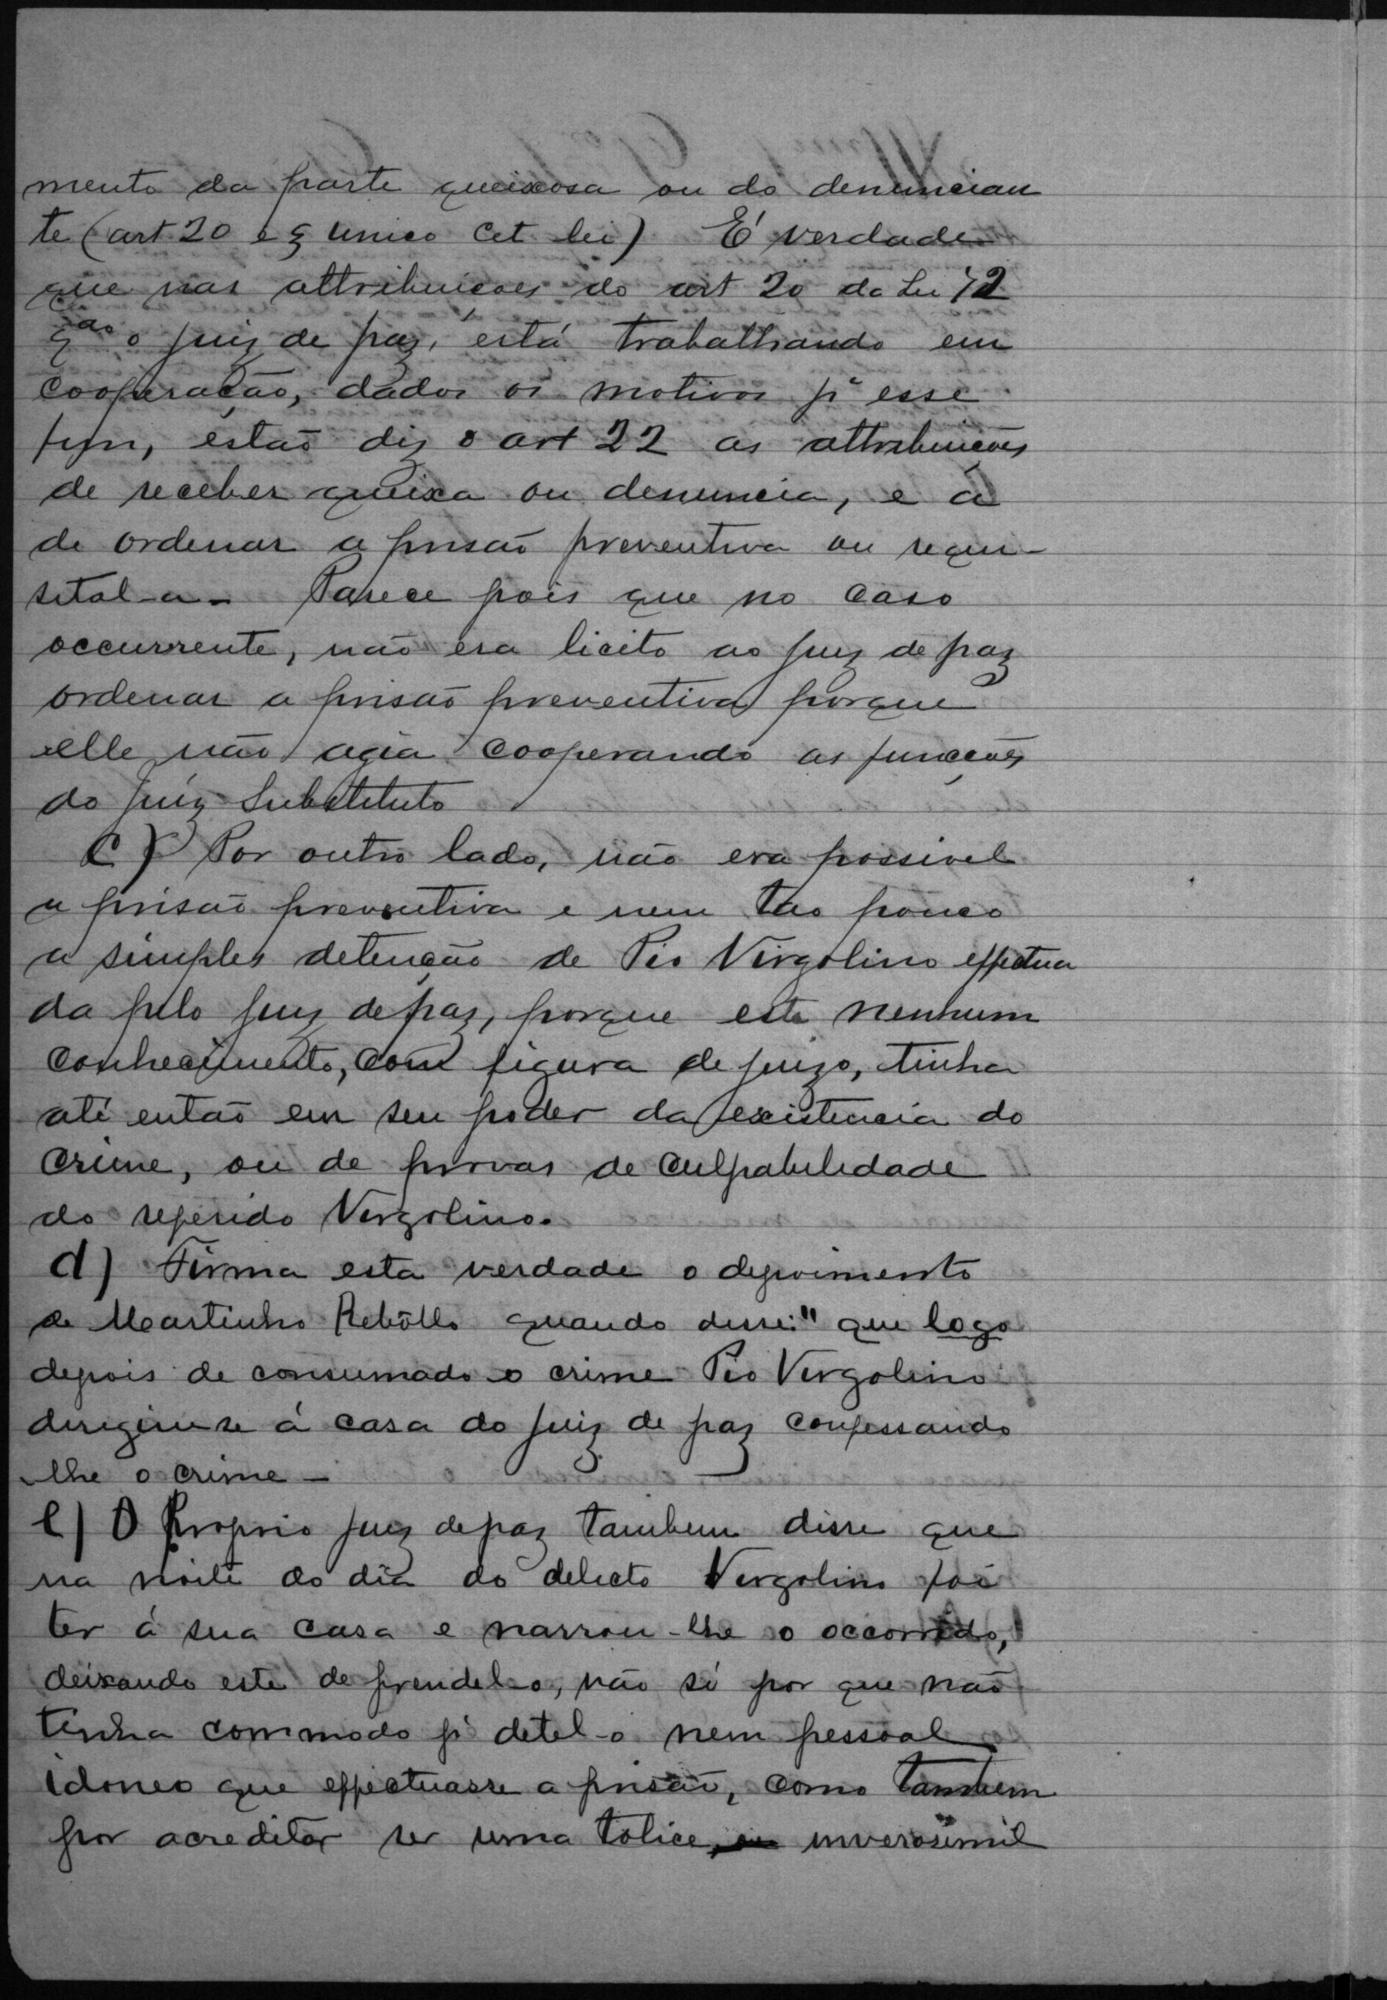 mento da parte queixosa ou do denuncian
te (art 20 e § unico cit lei) É verdade
que nas attribuicoes do art 20 da Lei 72
qdo o juiz de paz, está trabalhando em
cooperação, dados os motivos pª esse
fim, estão diz o art 22 as attribuições
de receber queixa ou denuncia, e a
de ordenar a prisão preventiva ou requi-
sital-a- Parece pois que no caso
occurrente, não era licito ao juiz de paz
ordenar a prisão preventiva porque
elle não agia cooperando as funcções
do juiz Substituto
C) Por outro lado, não era possivel
a prisão preventiva e nem tão pouco
a simples detenção de Pio Virgolino effectua
da pelo juiz de paz, porque este nenhum
conhecimento, com figura de juizo, tinha
até então em seu poder da existencia do
crime, ou de provas de culpabilidade
do referido Vergolino.
d) Firma esta verdade o depoimento
de Martinho Rebôllo quando disse: "que logo
depois de consumado o crime Pio Vergolino
dirigiu-se á casa do juiz de paz confessando
-lhe o crime -
e) O Proprio juiz de paz tambem disse que
na noite do dia do delicto Vergolino foi
ter á sua casa e narrou-lhe o occorrido,
deixando este de prendel-o, não só por que não
tinha commodo pª detel-o nem pessoal
idoneo que effectuasse a prisão, como tambem
por acreditar ser uma tolice, inverosimil